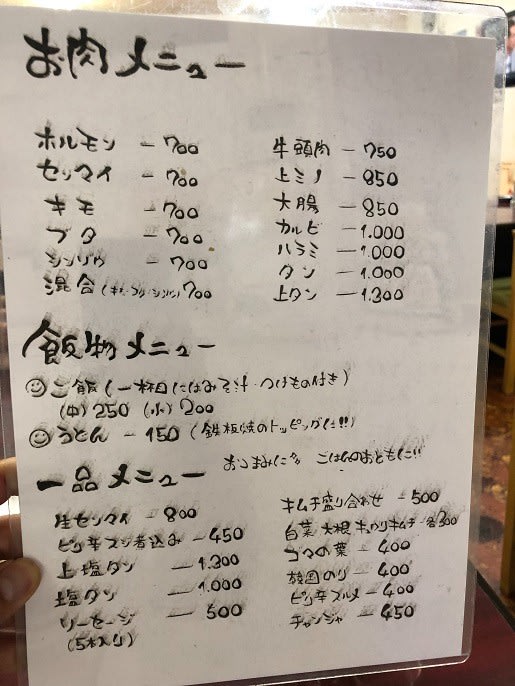 お肉メニュー
ホルモン — 700
センマイ — 700
キモ — 700
ブタ — 700
シンゾウ — 700
混合(キモ・ブタ・シンゾウ) 700
牛頭肉 — 750
上ミノ — 850
大腸 — 850
カルビ — 1.000
ハラミ — 1.000
タン — 1.000
上タン — 1.300
飯物メニュー
ご飯(一杯目にはみそ汁・つけもの付き)
(中) 250 (小) 200
うどん — 150 (鉄板焼のトッピングに!!)
一品メニュー
おつまみに〃 ごはんのおともに!!
生センマイ — 800
ピリ辛スジ煮込み — 450
上塩タン — 1.300
塩タン — 1.000
ソーセージ — 500
(5本入り)
キムチ盛り合わせ — 500
白菜 大根 キュウリキムチ — 各300
ゴマの葉 — 400
韓国のり — 400
ピリ辛スルメ — 400
チャンジャ — 450